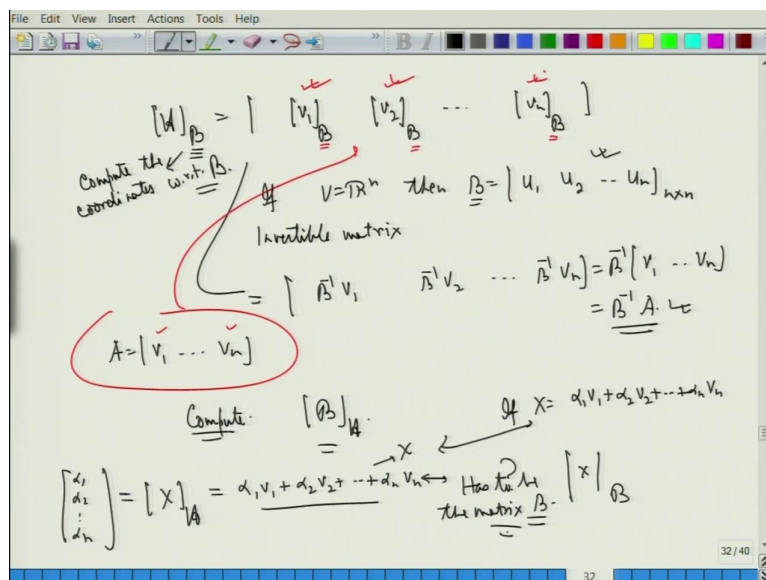 File Edit View Insert Actions Tools Help
[A]_B = [ [v₁]_B [v₂]_B ... [vₙ]_B ]
Compute the coordinates w.r.t. B.
If V=ℝⁿ then B=[u₁ u₂ -- uₙ]ₙₓₙ
Invertible matrix
= [ B⁻¹v₁ B⁻¹v₂ ... B⁻¹vₙ] = B⁻¹[v₁ -- vₙ]
= B⁻¹ A.
A=[v₁ ... vₙ]
Compute. [B]_A.
If X= α₁v₁+α₂v₂+--+αₙvₙ
[α₁ α₂ ⋮ αₙ] = [X]_A = α₁v₁+α₂v₂+ --+αₙvₙ ↔ Has to be the matrix B. [x]_B
X
?
32/40
32